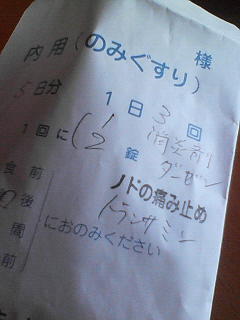 様
内用(のみぐすり)
5日分 1日3回
1回に(1 消炎剤
2錠 ダーゼン
食前 ノドの痛み止め
後 トランサミン
間 におのみください
前